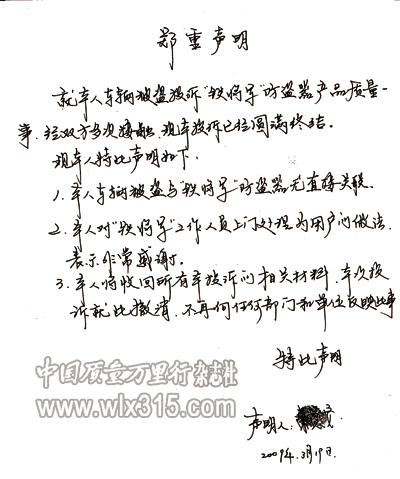 郑重声明
就本人车辆被盗投诉"铁将军"防盗器产品质量一
事，经双方多次接触，现本投诉已经圆满终结。
现本人特此声明如下：
1. 本人车辆被盗与"铁将军"防盗器无直接关联。
2. 本人对"铁将军"工作人员上门处理为用户的做法，
表示非常感谢。
3. 本人将收回所有本投诉的相关材料，本次投
诉就此撤消，不再向任何部门和单位反映此事
特此声明
中国质量万里行杂志社
www.wlx315.com
声明人：
2009年3月19日.